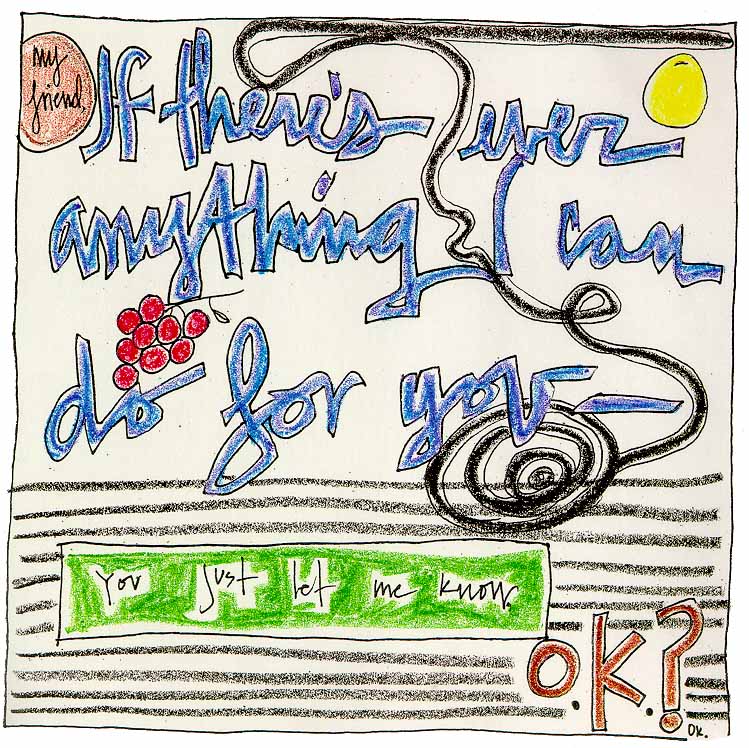 my
friend.
If there's ever
anything I can
do for you-
You just let me know.
O.K.?
OK.